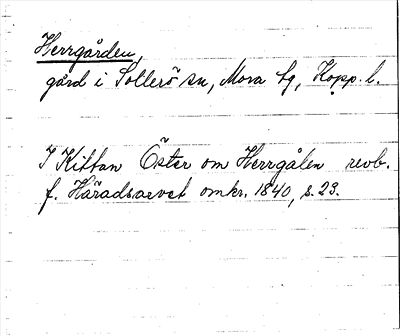 Herrgården,
gård i Sollerö sn, Mora tg, Kopp. l.
I Kittan Öster om Herrgålen revb.
f. Häradsarvet omkr. 1840, s. 23.